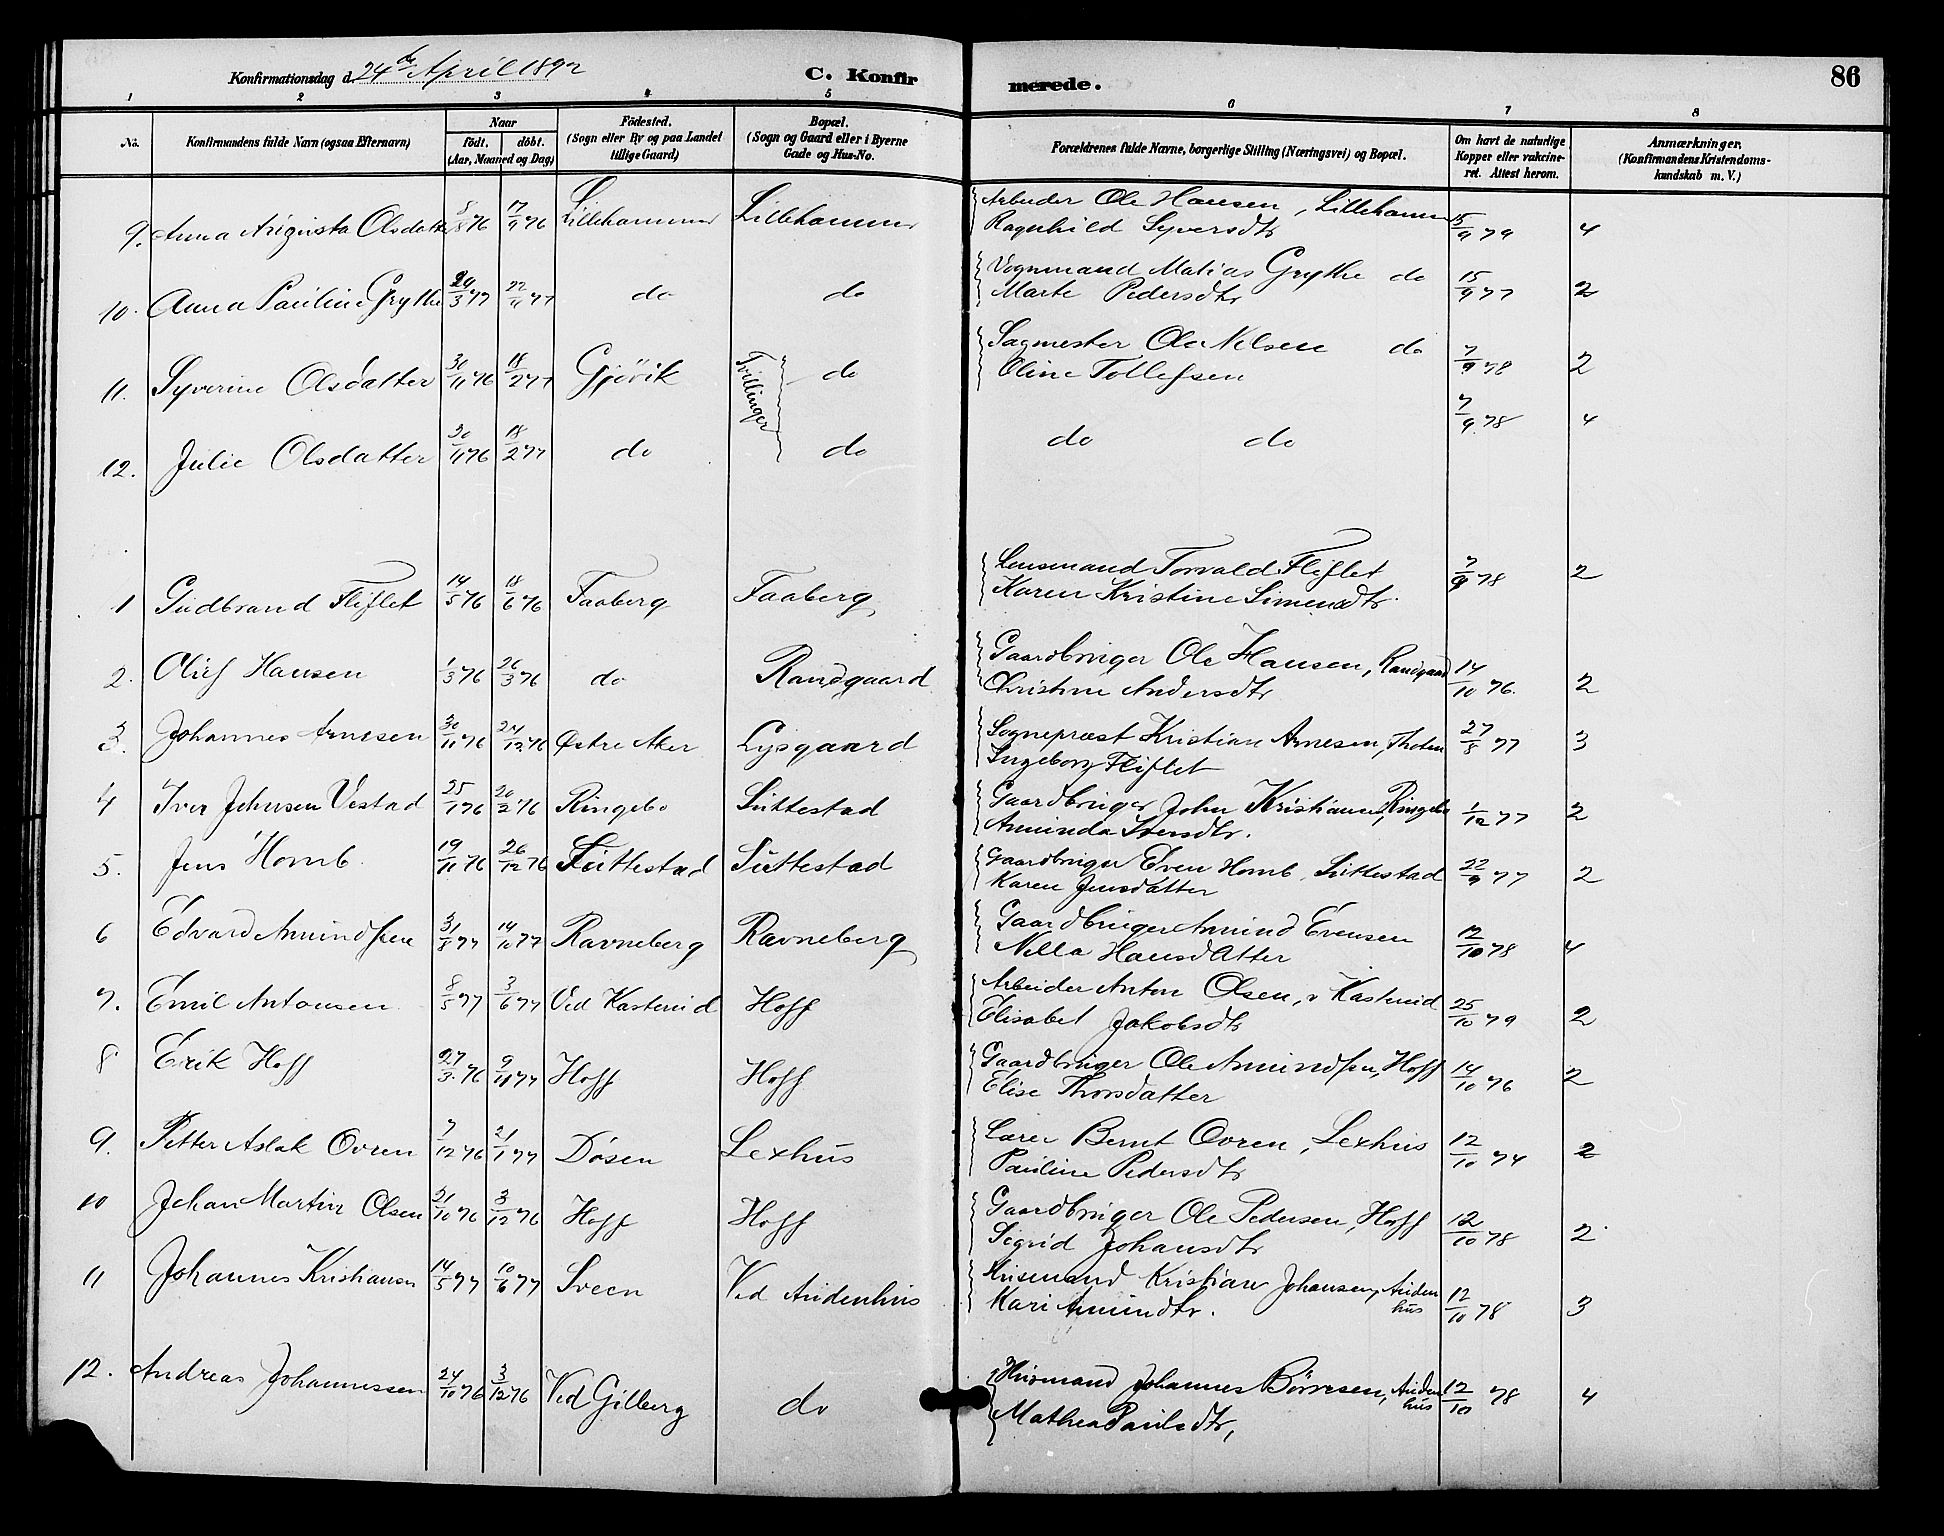 Konfirmationsdag d. 24de April 1892
C. Konfirmerede.
86
1 2 3 4 5 6 7 8
No.
Konfirmandens fulde Navn (ogsaa Efternavn)
Naar
födt. döbt.
(Aar, Maaned og Dag)
Födested.
(Sogn eller By og paa Landet
tillige Gaard)
Bopæl.
(Sogn og Gaard eller i Byerne
Gade og Hus-No.
Forældrenes fulde Navne, borgerlige Stilling (Næringsvei) og Bopæl.
Om havt de naturlige
Kopper eller vakcine-
ret. Attest herom.
Anmærkninger,
(Konfirmandens Kristendoms-
kundskab m. V.)
9. Anna Augusta Olsdatter 5/8 76 17/9 76 Lillehammer Lillehammer Arbeider Ole Hansen, Lillehammer 15/9 79 4
Ragnhild Syversdtr
10. Anna Pauline Grythe 29/3 77 22/11 77 do do Vognmand Matias Grythe do 15/9 77 2
Marte Pedersdtr
11. Syverine Olsdatter 30/11 76 18/2 77 Gjövik Tvillinger do Sagmester Ole Nilsen do 7/9 78 2
Oline Tollefsen
12. Julie Olsdatter 30/11 76 18/2 77 do do do do 7/9 78 4
1 Gudbrand Fliflet 14/5 76 18/6 76 Faaberg Faaberg Lensmand Torvald Fliflet 7/9 78 2
Karen Kristine Simensdtr.
2. Oluf Hansen 1/3 76 26/3 76 do Randgaard Gaardbruger Ole Hansen, Randgaard 14/10 76. 2
Christine Andersdtr
3. Johannes Arnesen 30/11 76 24/12 76 Østre Aker Lysgaard Sognepræst Kristian Arnesen, Thoten 27/8 77 3
Ingeborg Fliflet
4 Iver Johnsen Vestad 25/1 76 20/2 76 Ringebo Suttestad Gaardbruger John Kristiansen, Ringebo 1/12 77 2
Aminda Iversdtr.
5. Jens Homb 19/11 76 26/12 76 Suttestad Suttestad Gaardbruger Even Homb, Suttestad 22/9 77 2
Karen Jensdatter
6 Edvard Amundsen 31/8 77 14/10 77 Ravneberg Ravneberg Gaardbruger Amund Evensen 12/10 78 4
Nilla Hansdatter
7. Emil Antonsen 8/5 77 3/6 77 Ved Kastenid Hoff Arbeider Anton Olsen, v Kastenid 25/10 79 2
Elisabet Jakobsdtr
8 Erik Hoff 27/3. 76 9/11 77 Hoff Hoff Gaardbruger Ole Amundsen, Hoff 14/10 76 2
Elise Thorsdatter
9. Petter Aslak Ovren 7/12 76 21/1 77 Døsen Lexhus Lærer Bernt Ovren, Lexhus 12/10 74 2
Pauline Pedersdtr
10 Johan Martin Olsen 21/10 76 3/12 76 Hoff Hoff Gaardbruger Ole Pedersen, Hoff 12/10 78 2
Sigrid Johansdtr
11 Johannes Kristiansen 14/5 77 10/6 77 Sveen Ved Audenhus Husmand Kristian Johansen, Auden 12/10 78 3
Mari Amundtr. hus
12. Andreas Johannessen 24/10 76 3/12 76 Ved Gilberg do Husmand Johannes Börresen, Auden 12/10 78 4
hus
Mathea Paulsdtr,